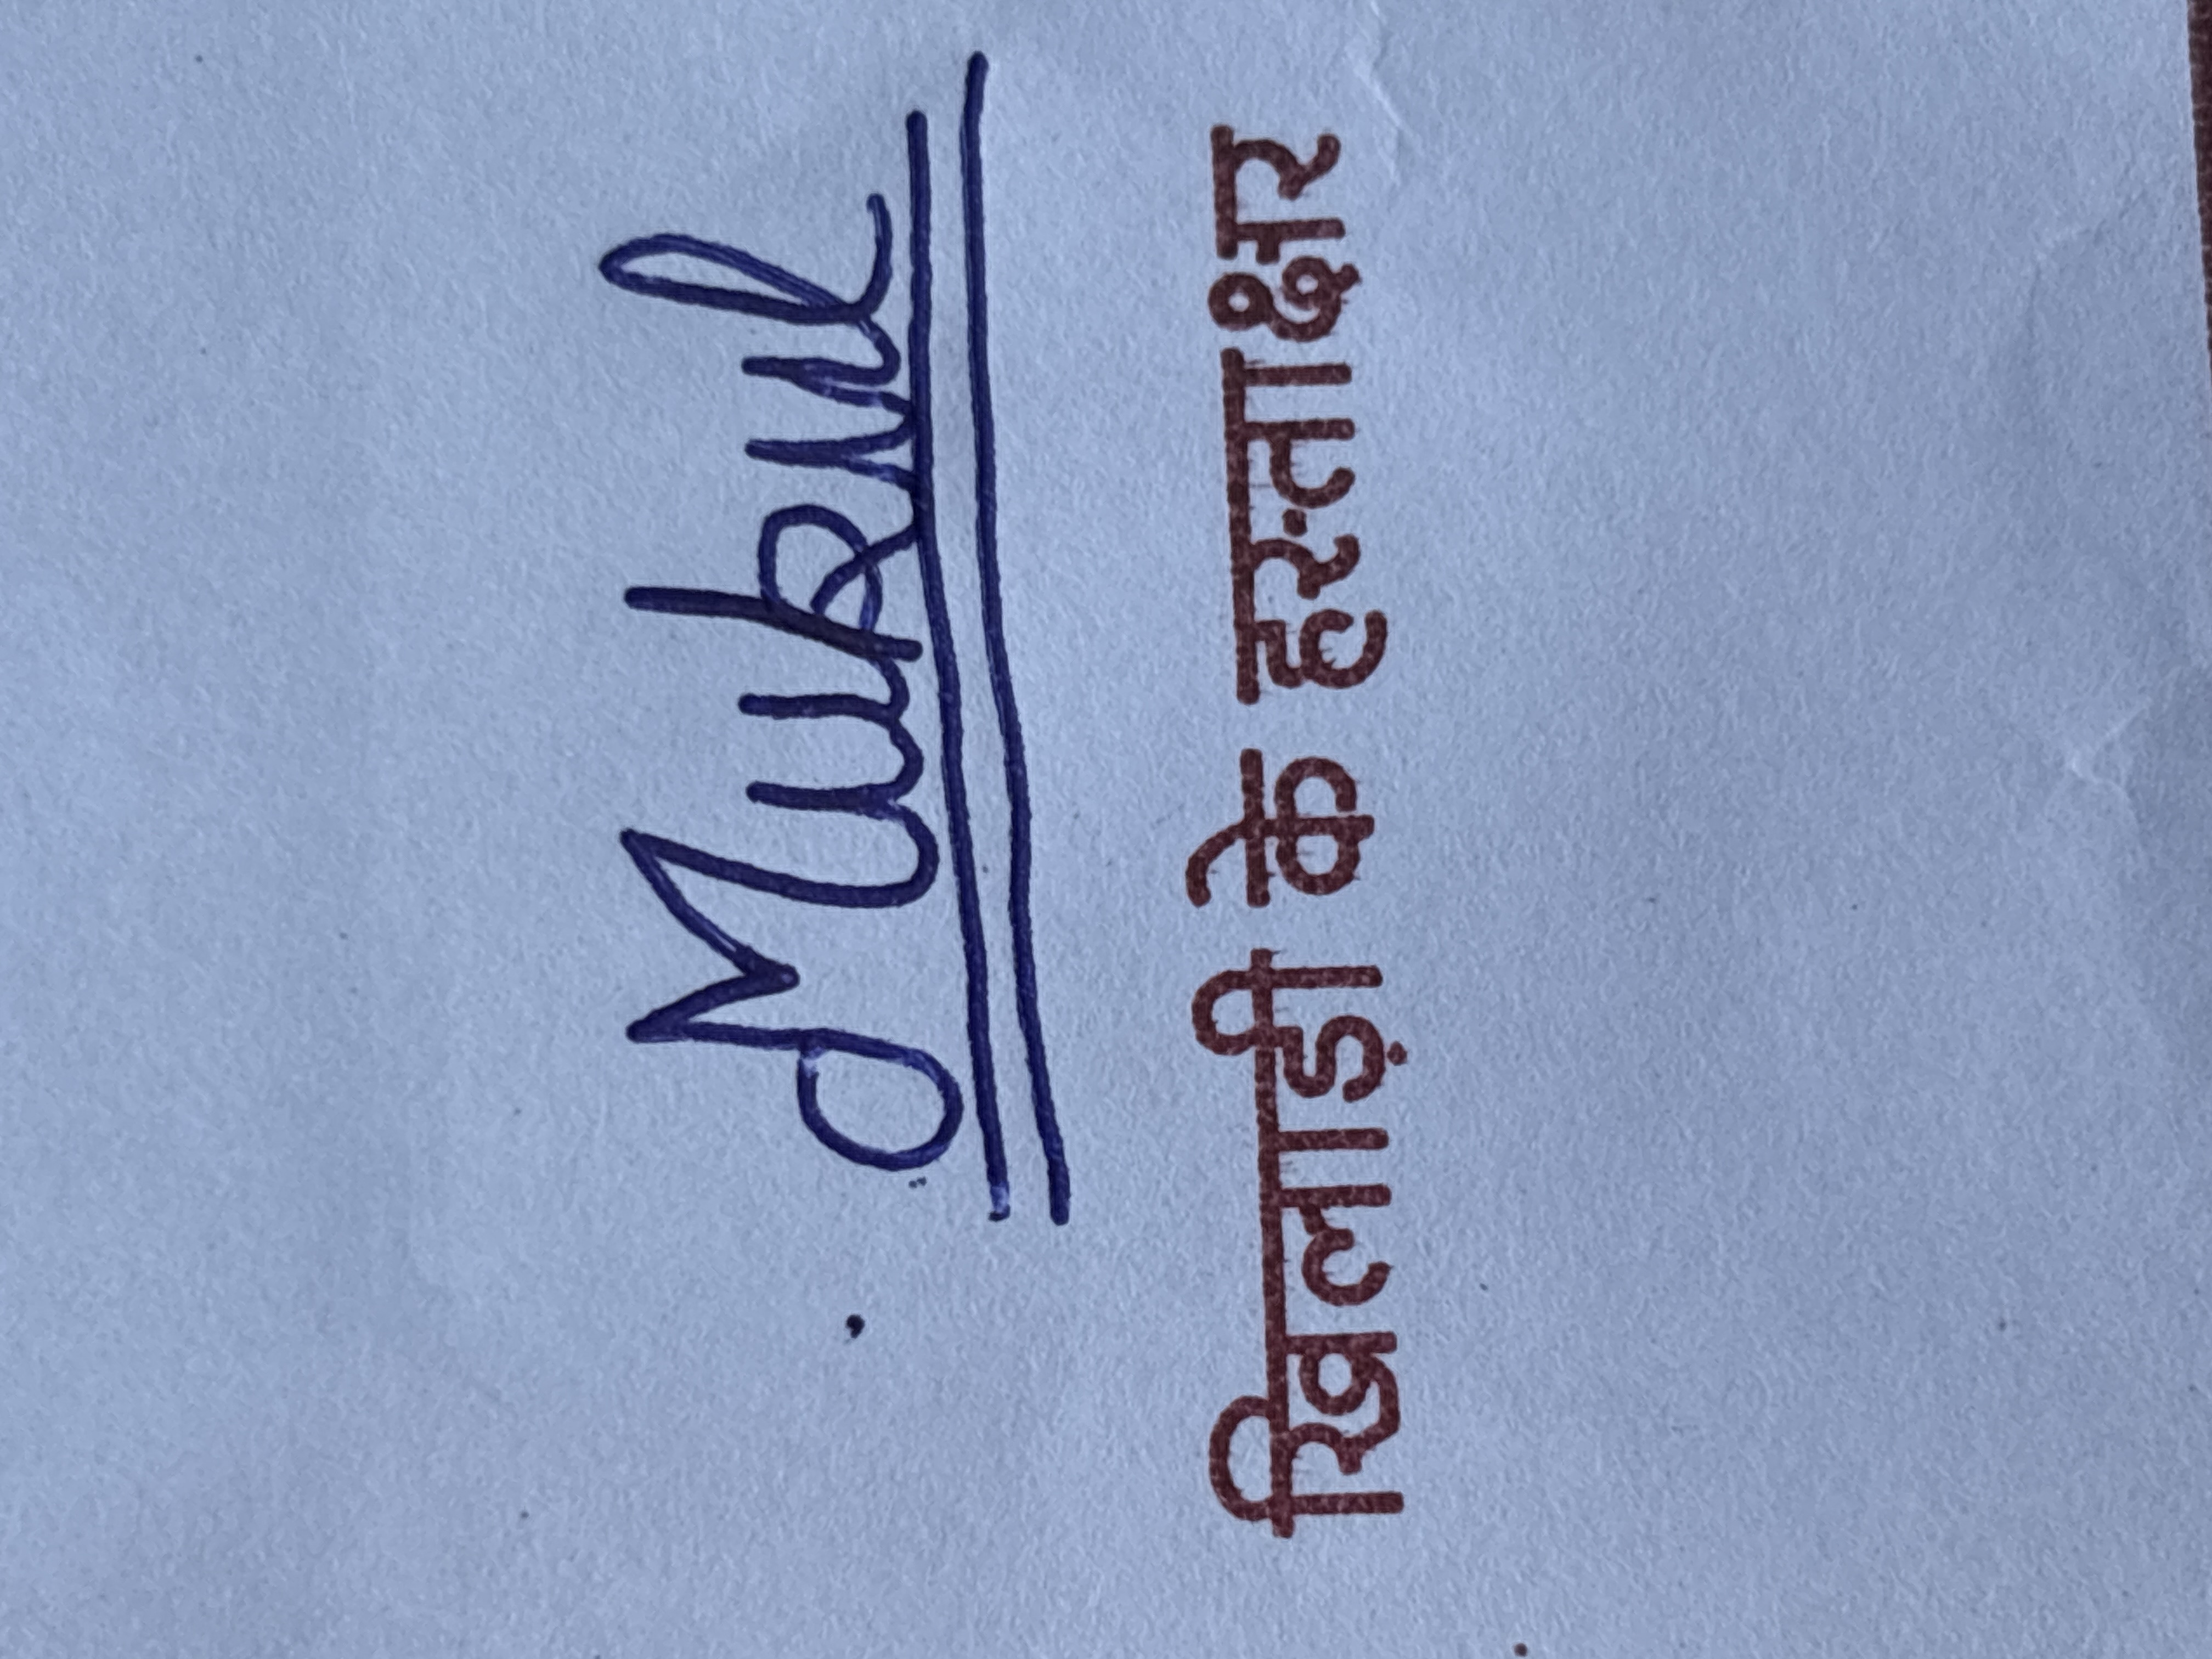 Mukul
खिलाड़ी के हस्ताक्षर